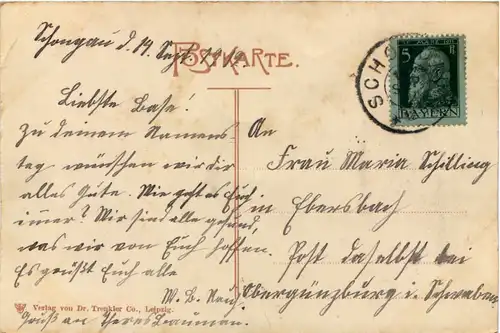 Schongau d. 19. Sept. 1912
POSTKARTE.
Liebste Base!
Zu deinem Namens
tag wünschen wir dir
alles Gute. Wie geht es Euch
immer? Wir sind alle gesund,
was wir von Euch hoffen.
Es grüßt Euch alle
W. B.
Gruß an Theres Bauman.
An
Frau Maria Schilling
in Ebersbach
Post daselbst bei
Obergünzburg i. Schwaben
SCHO
5 5
BAYERN
Verlag von Dr. Trenkler Co., Leipzig.